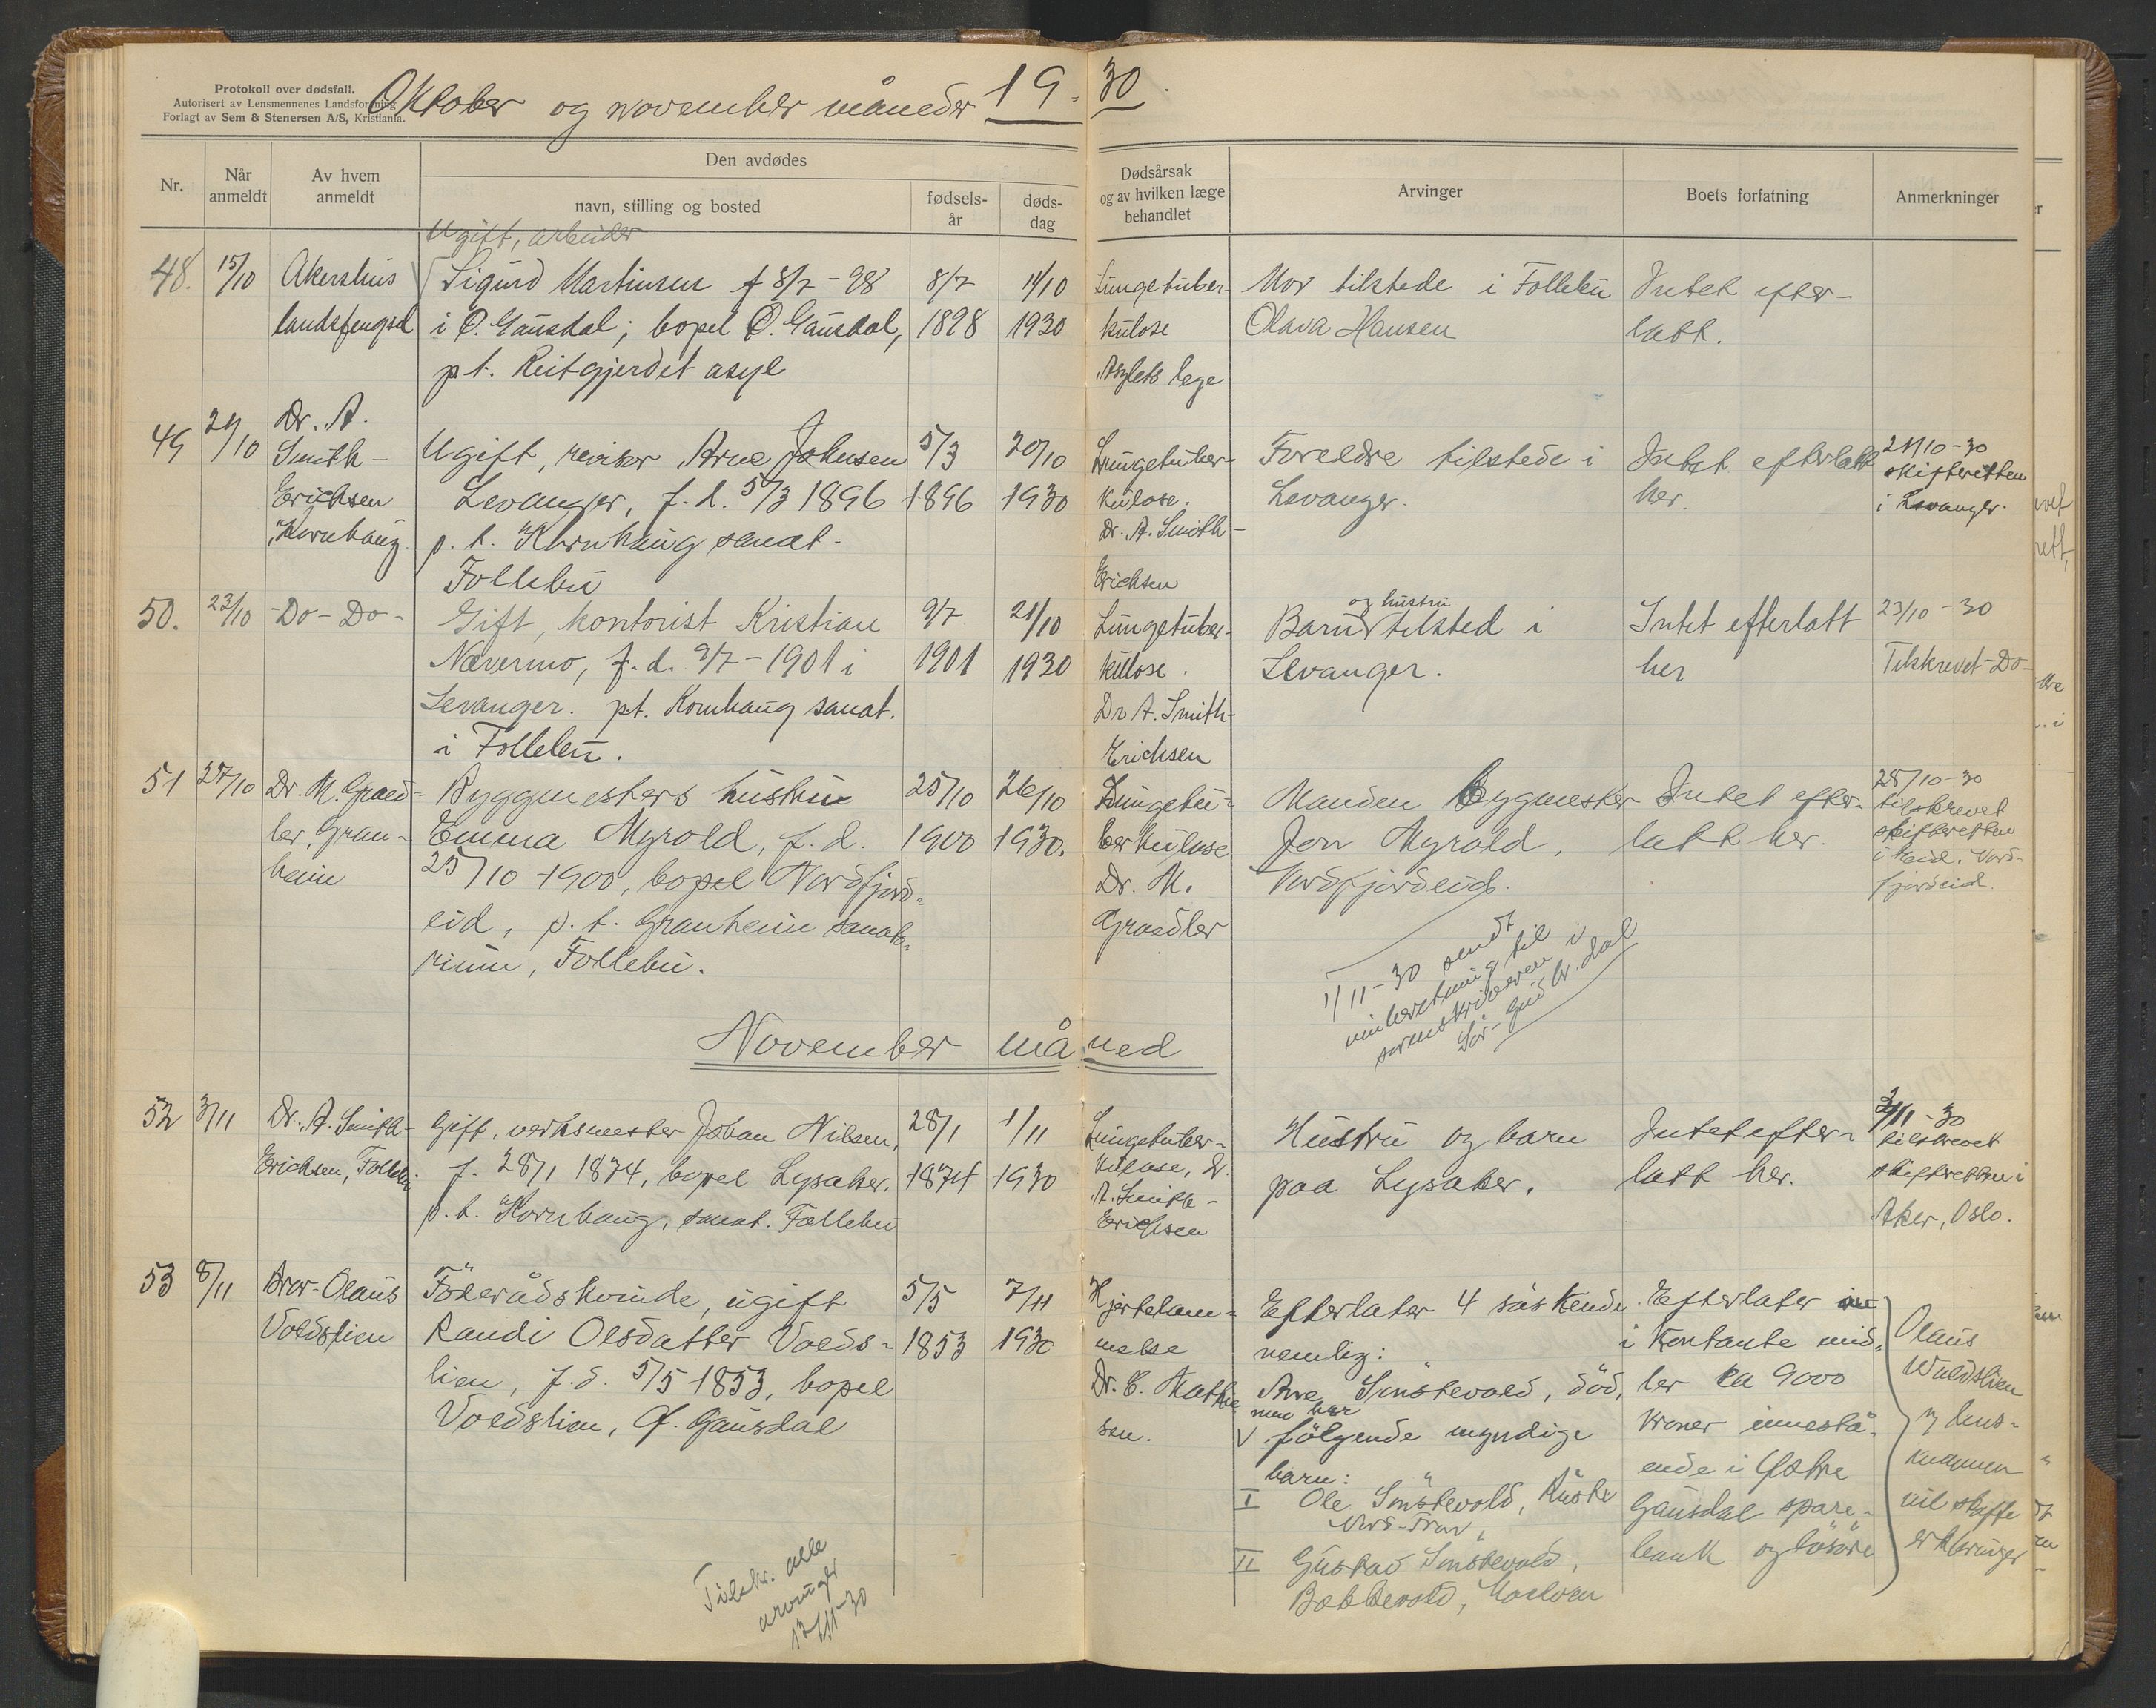 Protokoll over dødsfall.
Autorisert av Lensmennenes Landsforening
Forlagt av Sem & Stenersen A/S, Kristiania.
Oktober og november måneder 19 30.
Nr.
Når anmeldt
Av hvem anmeldt
Den avdødes
navn, stilling og bosted
fødselsår
dødsdag
Dødsårsak og av hvilken læge behandlet
Arvinger
Boets forfatning
Anmerkninger
48. 15/10
Akershus
landsfengsel
Ugift, arbeider
Sigurd Martinsen f 8/7 - 98
i Ø. Gausdal; bopel Ø. Gausdal,
pt. Reitgjerdet asyl
8/7
1898
11/10
1930
Lungetuber-
kulose
Asylets lege
Mor tilstede i Follebu
Olava Hansen
Intet efter-
latt.
49 21/10
Dr. A.
Smith-
Erichsen
Kornhaug.
Ugift, revisor Arne Johnsen
Levanger, f. d. 5/3 1896
p. t. Kornhaug sanat.
Follebu
5/3
1896
20/10
1930
Lungetuber-
kulose.
Dr. A. Smith-
Erichsen
Foreldre tilstede i
Levanger.
Intet efterlatt
her.
21/10-30
skifteretten
i Levanger.
50. 23/10
-Do-Do-
Gift, kontorist Kristian
Nævermo, f. d. 9/7-1901 i
Levanger. pt. Kornhaug sanat.
i Follebu.
9/7
1901
21/10
1930
Lungetuber-
kulose.
Dr A. Smith-
Erichsen
og hustru
Barn tilsted i
Levanger.
Intet efterlatt
her
23/10-30
Tilskrevet-Do-
51 27/10
Dr. M. Graed-
ler, Gran-
heim
Byggmesters hustru
Emma Myrold, f. d.
25/10 1900, bopel Nordfjord-
eid, p. t. Granheim sanato-
rium, Follebu.
25/10
1900
26/10
1930.
Lungetu-
berkulose
Dr. M.
Graedler
Manden Bygmester
Jon Myrold,
Nordfjordeid.
Intet efter-
latt her.
28/10-30
tilskrevet
skifteretten
i Eid. Nord-
fjordeid.
1/11-30 sendt
innberetning til
sorenskriveren i
Sør-Gudbr.dal
November måned
52 3/11
Dr. A. Smith-
Erichsen, Follebu
Gift, verksmester Johan Nilsen,
f. 28/1 1874, bopel Lysaker.
p. t. Kornhaug, sanat. Follebu
28/1
1874
1/11
1930
Lungetuber-
kulose, Dr.
A. Smith-
Erichsen
Hustru og barn
paa Lysaker.
Intet efter-
latt her.
3/11-30
tilskrevet
skifteretten i
Aker, Oslo.
53 8/11
Bror-Olaus
Voldslien
Föderådskvinde, ugift
Randi Olsdatter Volds-
lien, f. d. 5/5 1853, bopel
Voldslien, Ø. Gausdal
5/5
1853
7/11
1930
Hjertelam-
melse
Dr. C. Mathie
sen.
Efterlater 4 söskende
nemlig:
Ane Smöstevold, död,
men har
V følgende myndige
barn:
I Ole Smöstevold,
II Gustav Smöstevold,
Efterlater
i kontante mid-
ler ca 9000
kroner innestå-
ende i Østre
Gausdal spare-
bank og lösöre
Olaus
Woldslien
Tilskr. alle
arvinger
17/11-30